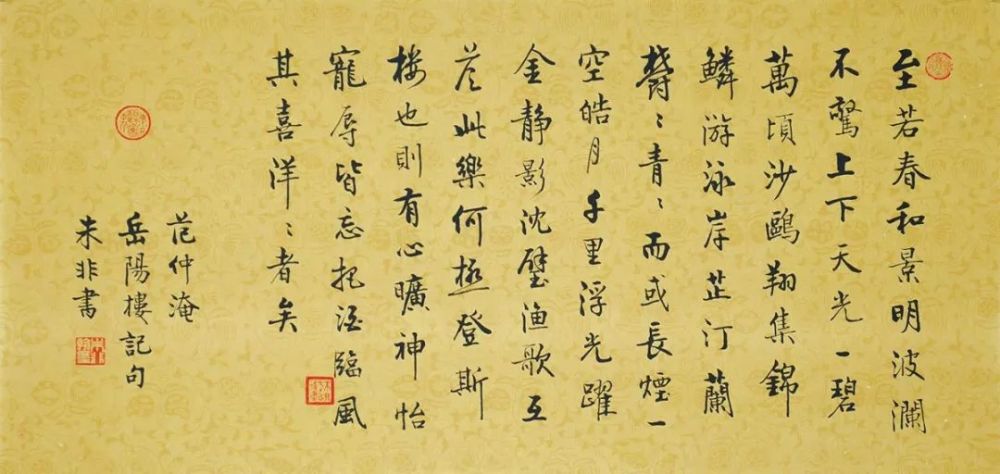 至若春和景明波瀾
不驚上下天光一碧
萬頃沙鷗翔集錦
鱗游泳岸芷汀蘭
欎〻青〻而或長煙一
空皓月千里浮光躍
金静影沈璧渔歌互
荅此樂何極登斯
楼也則有心曠神怡
寵辱皆忘把酒臨風
其喜洋〻者矣
范仲淹
岳陽樓記句
朱非書